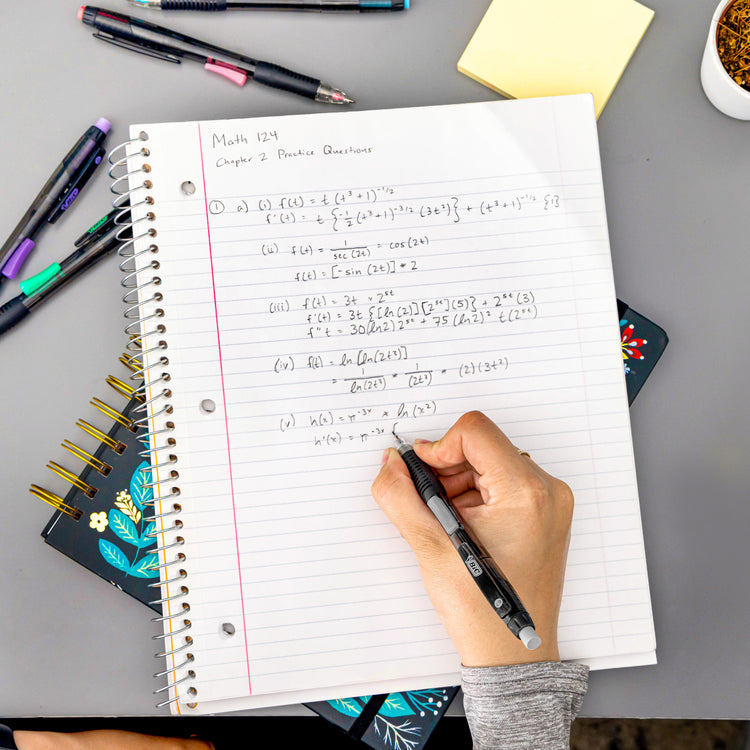 Math 124
Chapter 2 Practice Questions
① a) (i) f(t) = t (t³ + 1)^(-1/2)
f'(t) = t {-1/2 (t³ + 1)^(-3/2) (3t²)} + (t³ + 1)^(-1/2) {1}
(ii) f(t) = 1/sec(2t) = cos(2t)
f(t) = [-sin (2t)] * 2
(iii) f(t) = 3t * 2^(5t)
f'(t) = 3t {[ln(2)][2^(5t)](5)} + 2^(5t) (3)
f"t = 30(ln2) 2^(5t) + 75 (ln2)² t (2^(5t))
(iv) f(t) = ln [ln(2t³)]
= 1/ln(2t³) * 1/(2t³) * (2)(3t²)
(v) h(x) = π^(-3x) * ln(x²)
h'(x) = π^(-3x) {
BIC